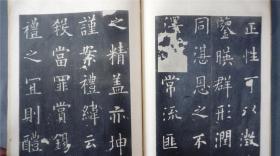 正性可以澂
鑒暎群形潤
同湛恩之不
澤常流匪
之精盖亦坤
謹案禮緯云
殺當罪賞錫
禮之宜則醴